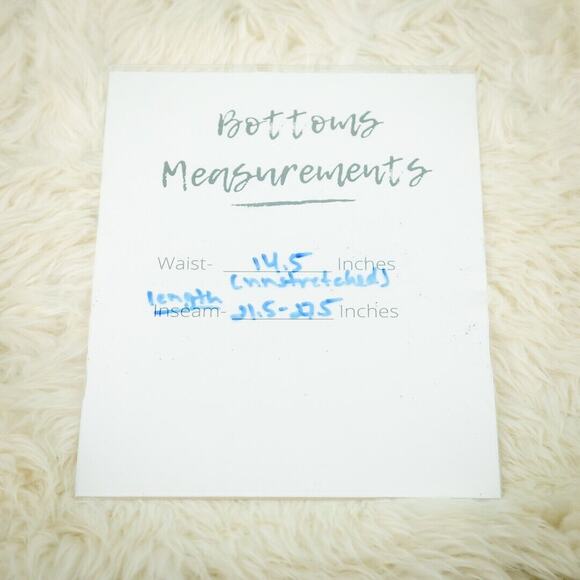 Bottoms
Measurements
Waist- 14.5 Inches
(unstretched)
length
Inseam- 21.5-27.5 Inches